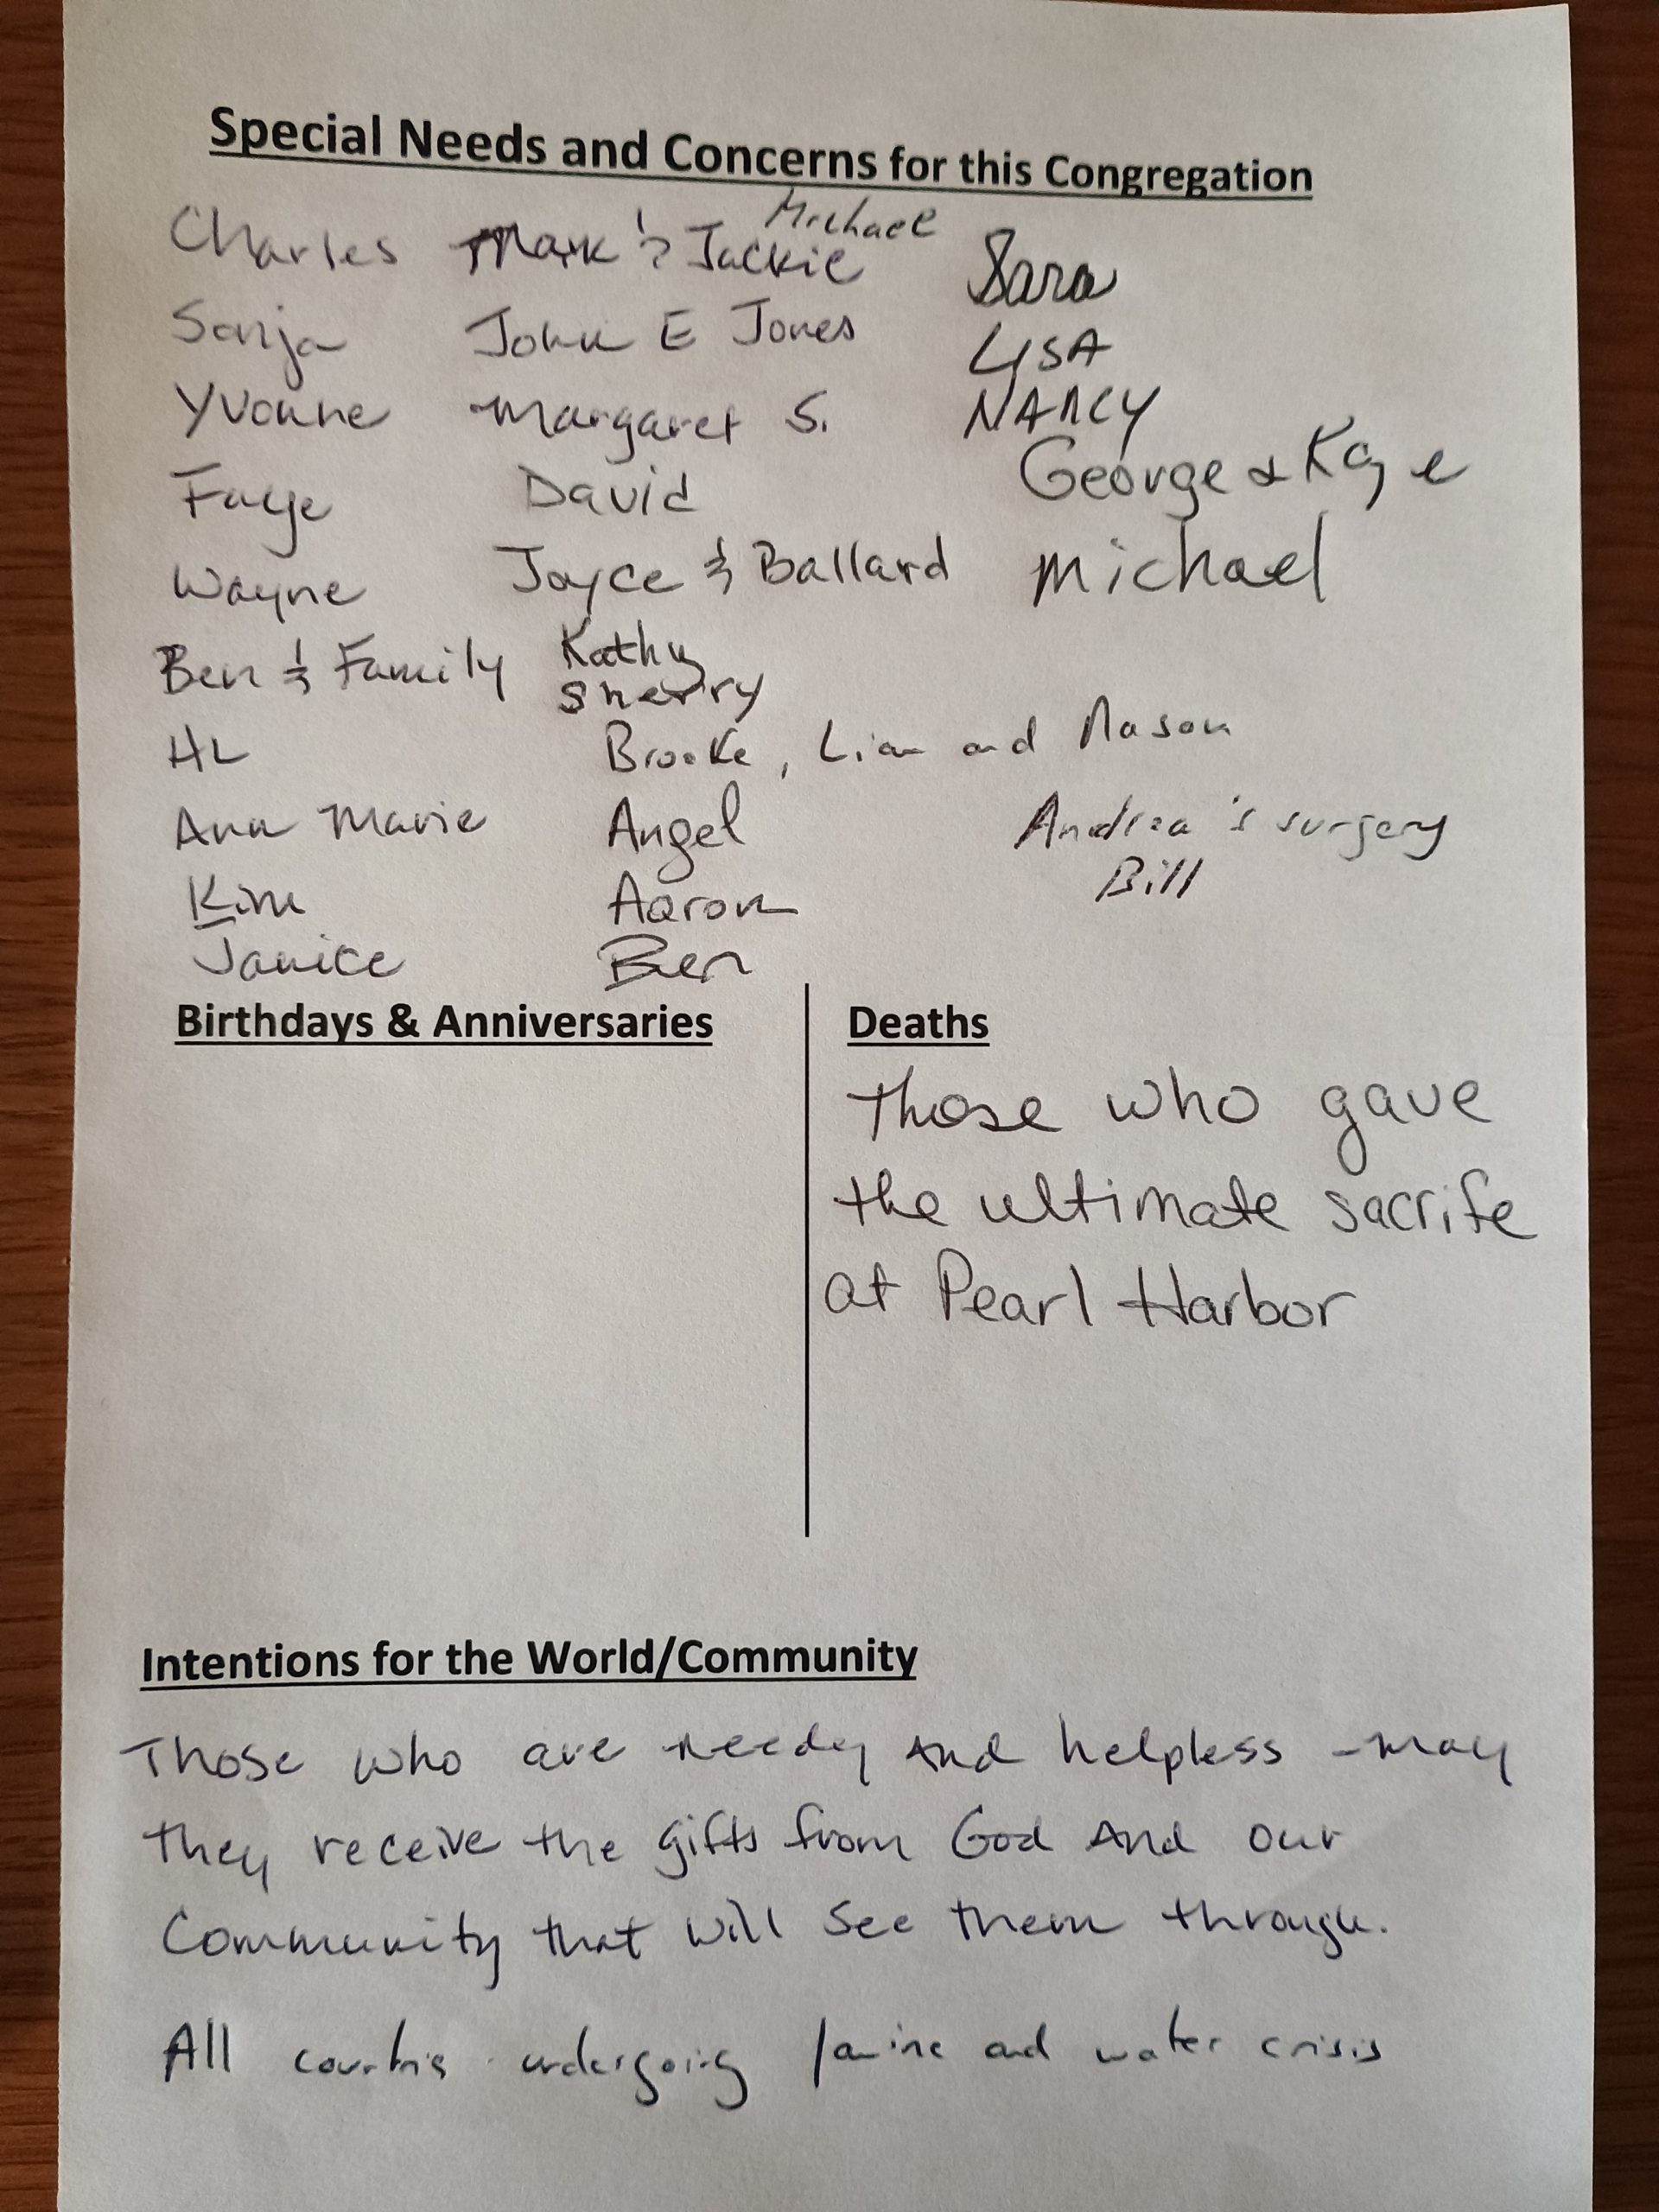 Special Needs and Concerns for this Congregation
Michael
Charles Mark & Jackie Sara
Sonja John E Jones LISA
Yvonne Margaret S. NANCY
Faye David George & Kaye
Wayne Joyce & Ballard Michael
Ben & Family Kathy
Sherry
HL Brooke, Liam and Mason
Ann Marie Angel Andrea's surgery
Kim Aaron Bill
Janice Ben
Birthdays & Anniversaries
Deaths
Those who gave
the ultimate sacrife
at Pearl Harbor
Intentions for the World/Community
Those who are needy and helpless - may
they receive the gifts from God And our
Community that will see them through.
All countris undergoing famine and water crisis